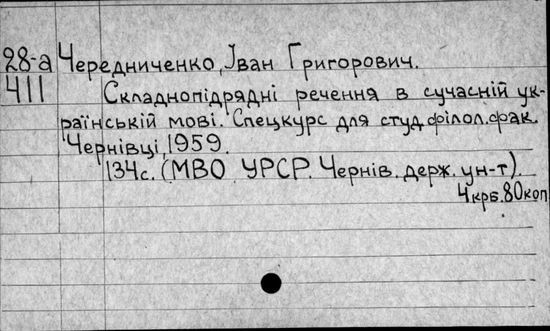 28-а Чередниченко, Іван Григорович.
411 Складнопідрядні речення в сучасній ук-
раїнській мові. Спецкурс для студ філол. фак.
Чернівці, 1959.
134с. (МВО УРСР. Чернів. держ. ун-т).
4крб. 80коп